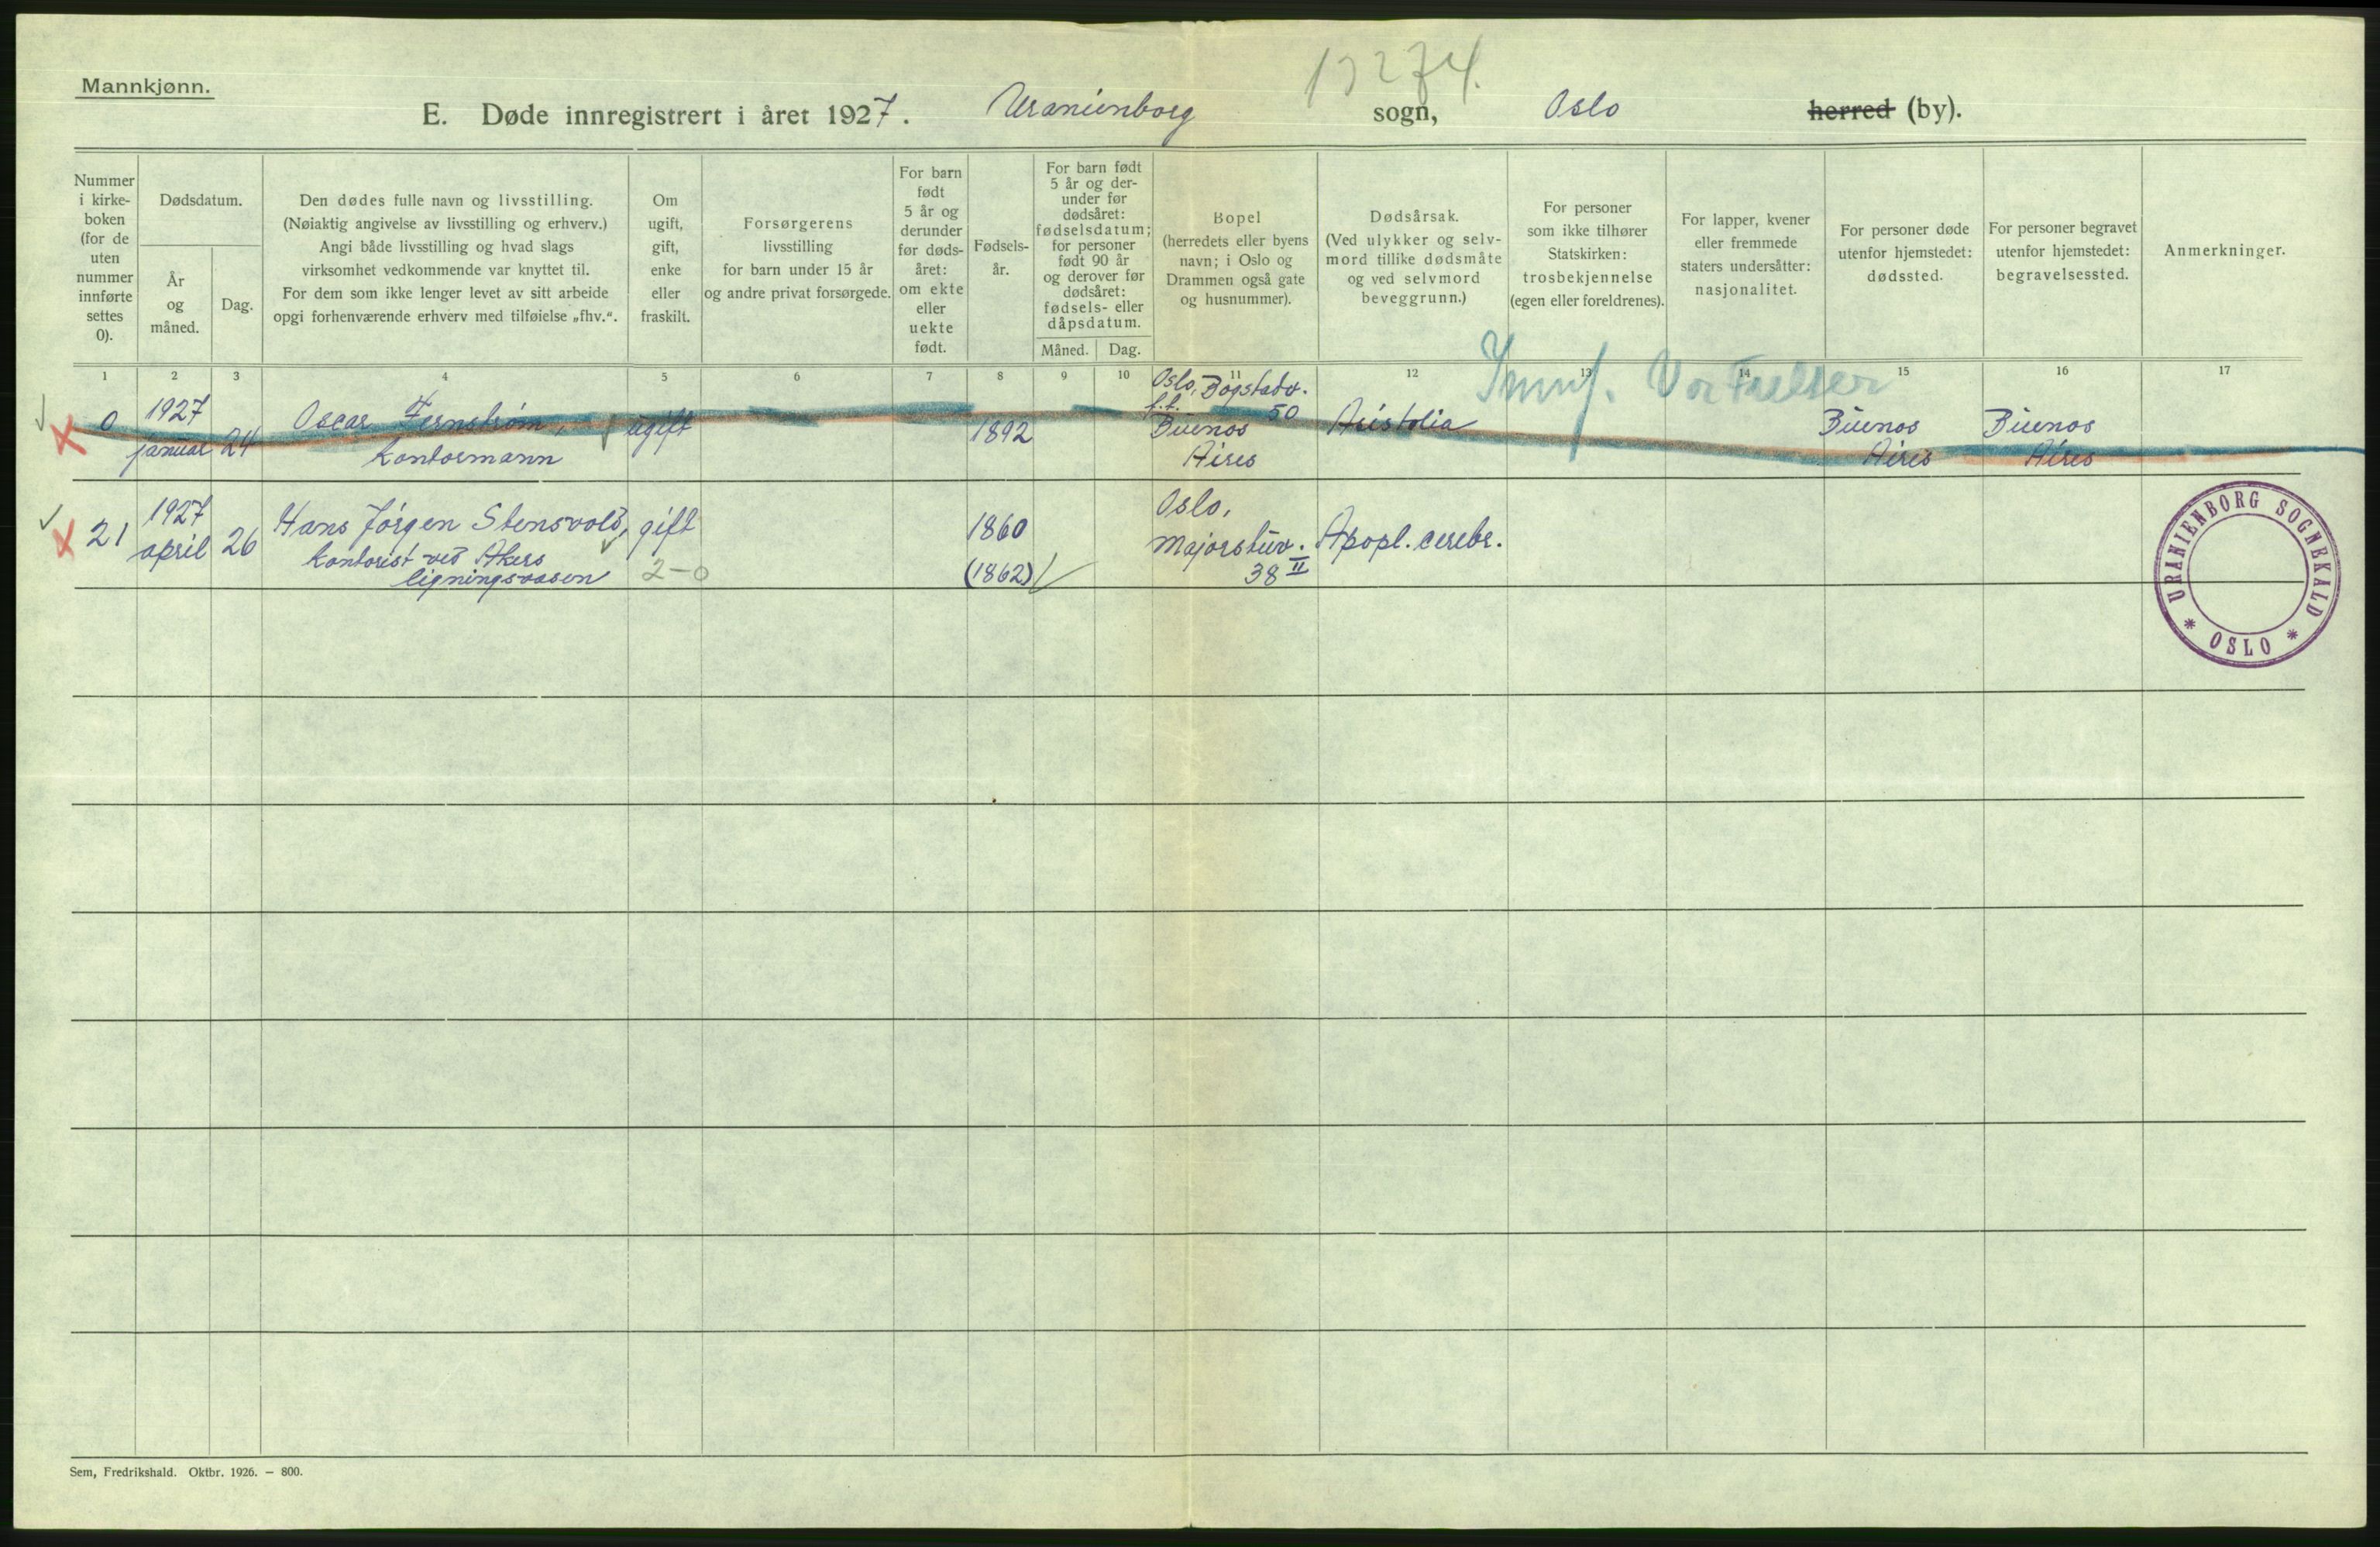 Mannkjønn.
13274.
E. Døde innregistrert i året 1927. Uranienborg sogn, Oslo herred (by).
Nummer i kirke-boken (for de uten nummer innførte settes 0).
Dødsdatum.
År og måned.
Dag.
Den dødes fulle navn og livsstilling.
(Nøiaktig angivelse av livsstilling og erhverv.)
Angi både livsstilling og hvad slags
virksomhet vedkommende var knyttet til.
For dem som ikke lenger levet av sitt arbeide
opgi forhenværende erhverv med tilføielse „fhv.“.
Om ugift, gift, enke eller fraskilt.
Forsørgerens
livsstilling
for barn under 15 år
og andre privat forsørgede.
For barn født 5 år og derunder før døds-året: om ekte eller uekte født.
Fødsels-år.
For barn født 5 år og der-under før dødsåret: fødselsdatum; for personer født 90 år og derover før dødsåret: fødsels- eller dåpsdatum.
Måned. Dag.
Bopel
(herredets eller byens
navn; i Oslo og
Drammen også gate
og husnummer).
Dødsårsak.
(Ved ulykker og selv-
mord tillike dødsmåte
og ved selvmord
beveggrunn.)
For personer
som ikke tilhører
Statskirken:
trosbekjennelse
(egen eller foreldrenes).
For lapper, kvener
eller fremmede
staters undersåtter:
nasjonalitet.
For personer døde
utenfor hjemstedet:
dødssted.
For personer begravet
utenfor hjemstedet:
begravelsessted.
Anmerkninger.
1 2 3 4 5 6 7 8 9 10 11 12 13 14 15 16 17
0
1927
januar 24
Oscar Fernstrøm,
kontormann
ugift
1892
Oslo, Bogstadv.
50
Buenos
Aires
Buenos
Aires
Buenos
Aires
21
1927
april 26
Hans Jørgen Stensvold,
kontorist ved Akers
ligningsvæsen
gift
2-0
1860
(1862)
Oslo,
Majorstuv.
38 II
Apopl. cerebr.
URANIENBORG SOGNEKALD
* OSLO *
Sem, Fredrikshald. Oktbr. 1926. – 800.